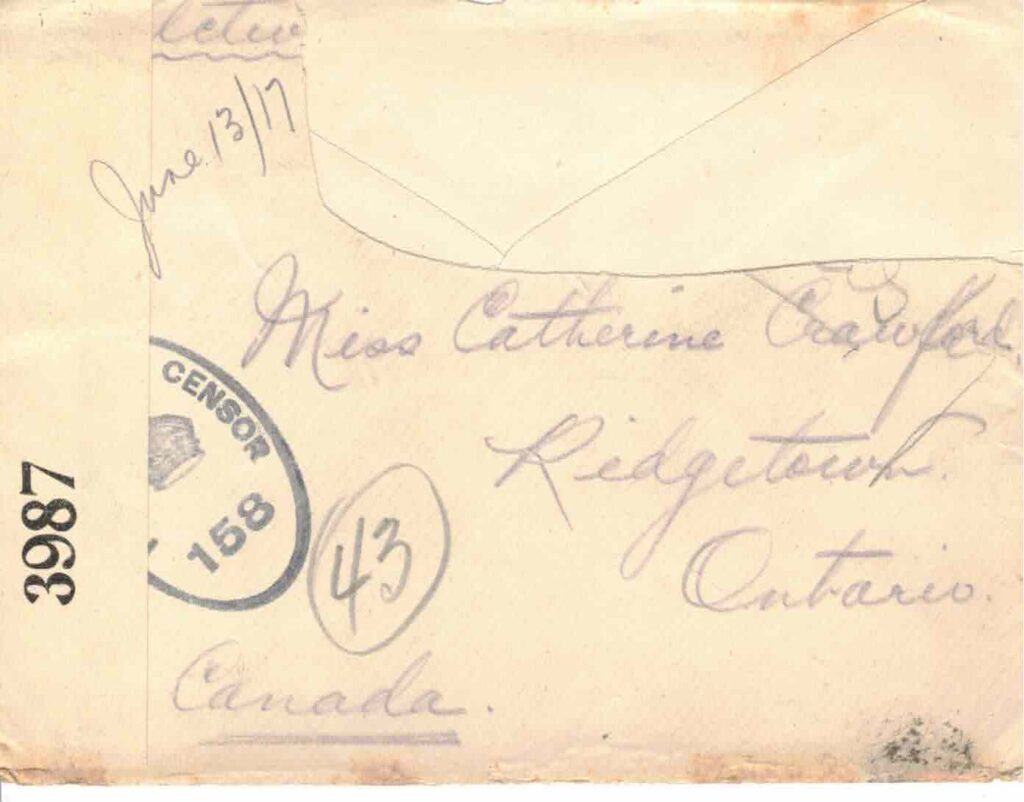 June 13/17
Miss Catherine Crawford.
CENSOR
158
3987
Ridgetown.
43
Ontario.
Canada.